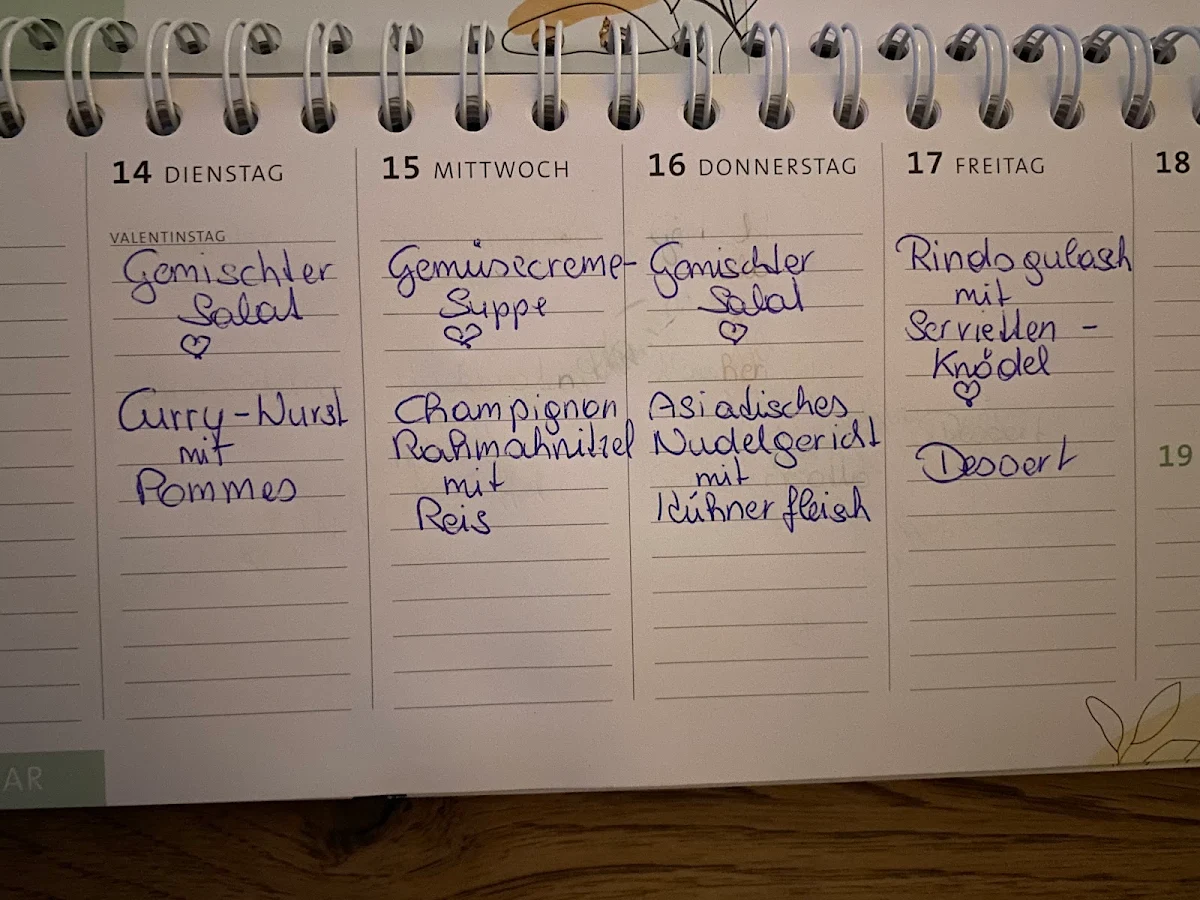 14 DIENSTAG
VALENTINSTAG
Gemischter
Salat
Curry-Wurst
mit
Pommes
15 MITTWOCH
Gemüsecreme-
Suppe
Champignon
Rahmahnitzel
mit
Reis
16 DONNERSTAG
Gemischter
Salat
Asiatisches
Nudelgericht
mit
Hühnerfleisch
17 FREITAG
Rindsgulasch
mit
Servietten -
Knödel
Dessert
18
19
AR